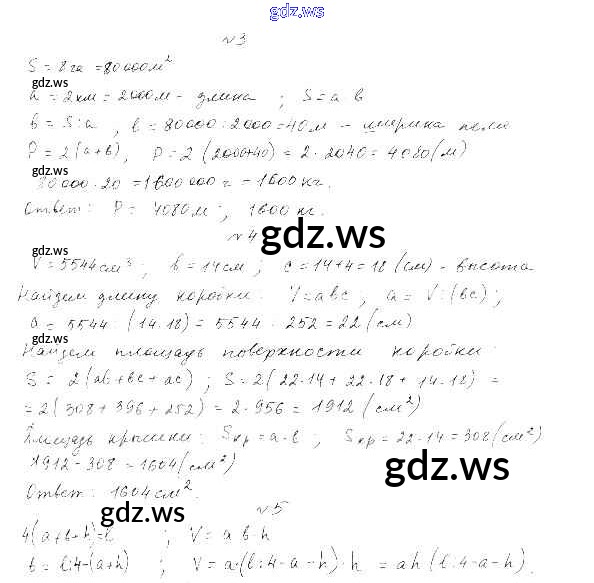 gdz.ws
№3
S = 8 га = 80000 м²
gdz.ws
a = 2 км = 2000 м - длина ; S = a b
b = S : a , b = 80000 : 2000 = 40 м - ширина поля
P = 2(a+b), P = 2 (2000+40) = 2 · 2040 = 4080 (м)
gdz.ws
80000 · 20 = 1600000 г = 1600 кг.
Ответ: P = 4080 м ; 1600 кг.
№4
gdz.ws
gdz.ws
V = 5544 см³ ; b = 14 см ; c = 14+4 = 18 (см) - высота
Найдем длину коробки: V = abc , a = V : (bc) ;
a = 5544 : (14·18) = 5544 : 252 = 22 (см)
gdz.ws
Найдем площадь поверхности коробки:
S = 2(ab+bc+ac) ; S = 2(22·14 + 22·18 + 14·18) =
= 2(308 + 396 + 252) = 2 · 956 = 1912 (см²)
gdz.ws
Площадь крышки: Sкр = a·b ; Sкр = 22·14 = 308 (см²)
1912 - 308 = 1604 (см²)
gdz.ws
Ответ: 1604 см².
gdz.ws
№5
4(a+b+h) = l ; V = a b h
b = l:4-(a+h) ; V = a·(l:4-a-h)·h = ah(l:4-a-h).
gdz.ws